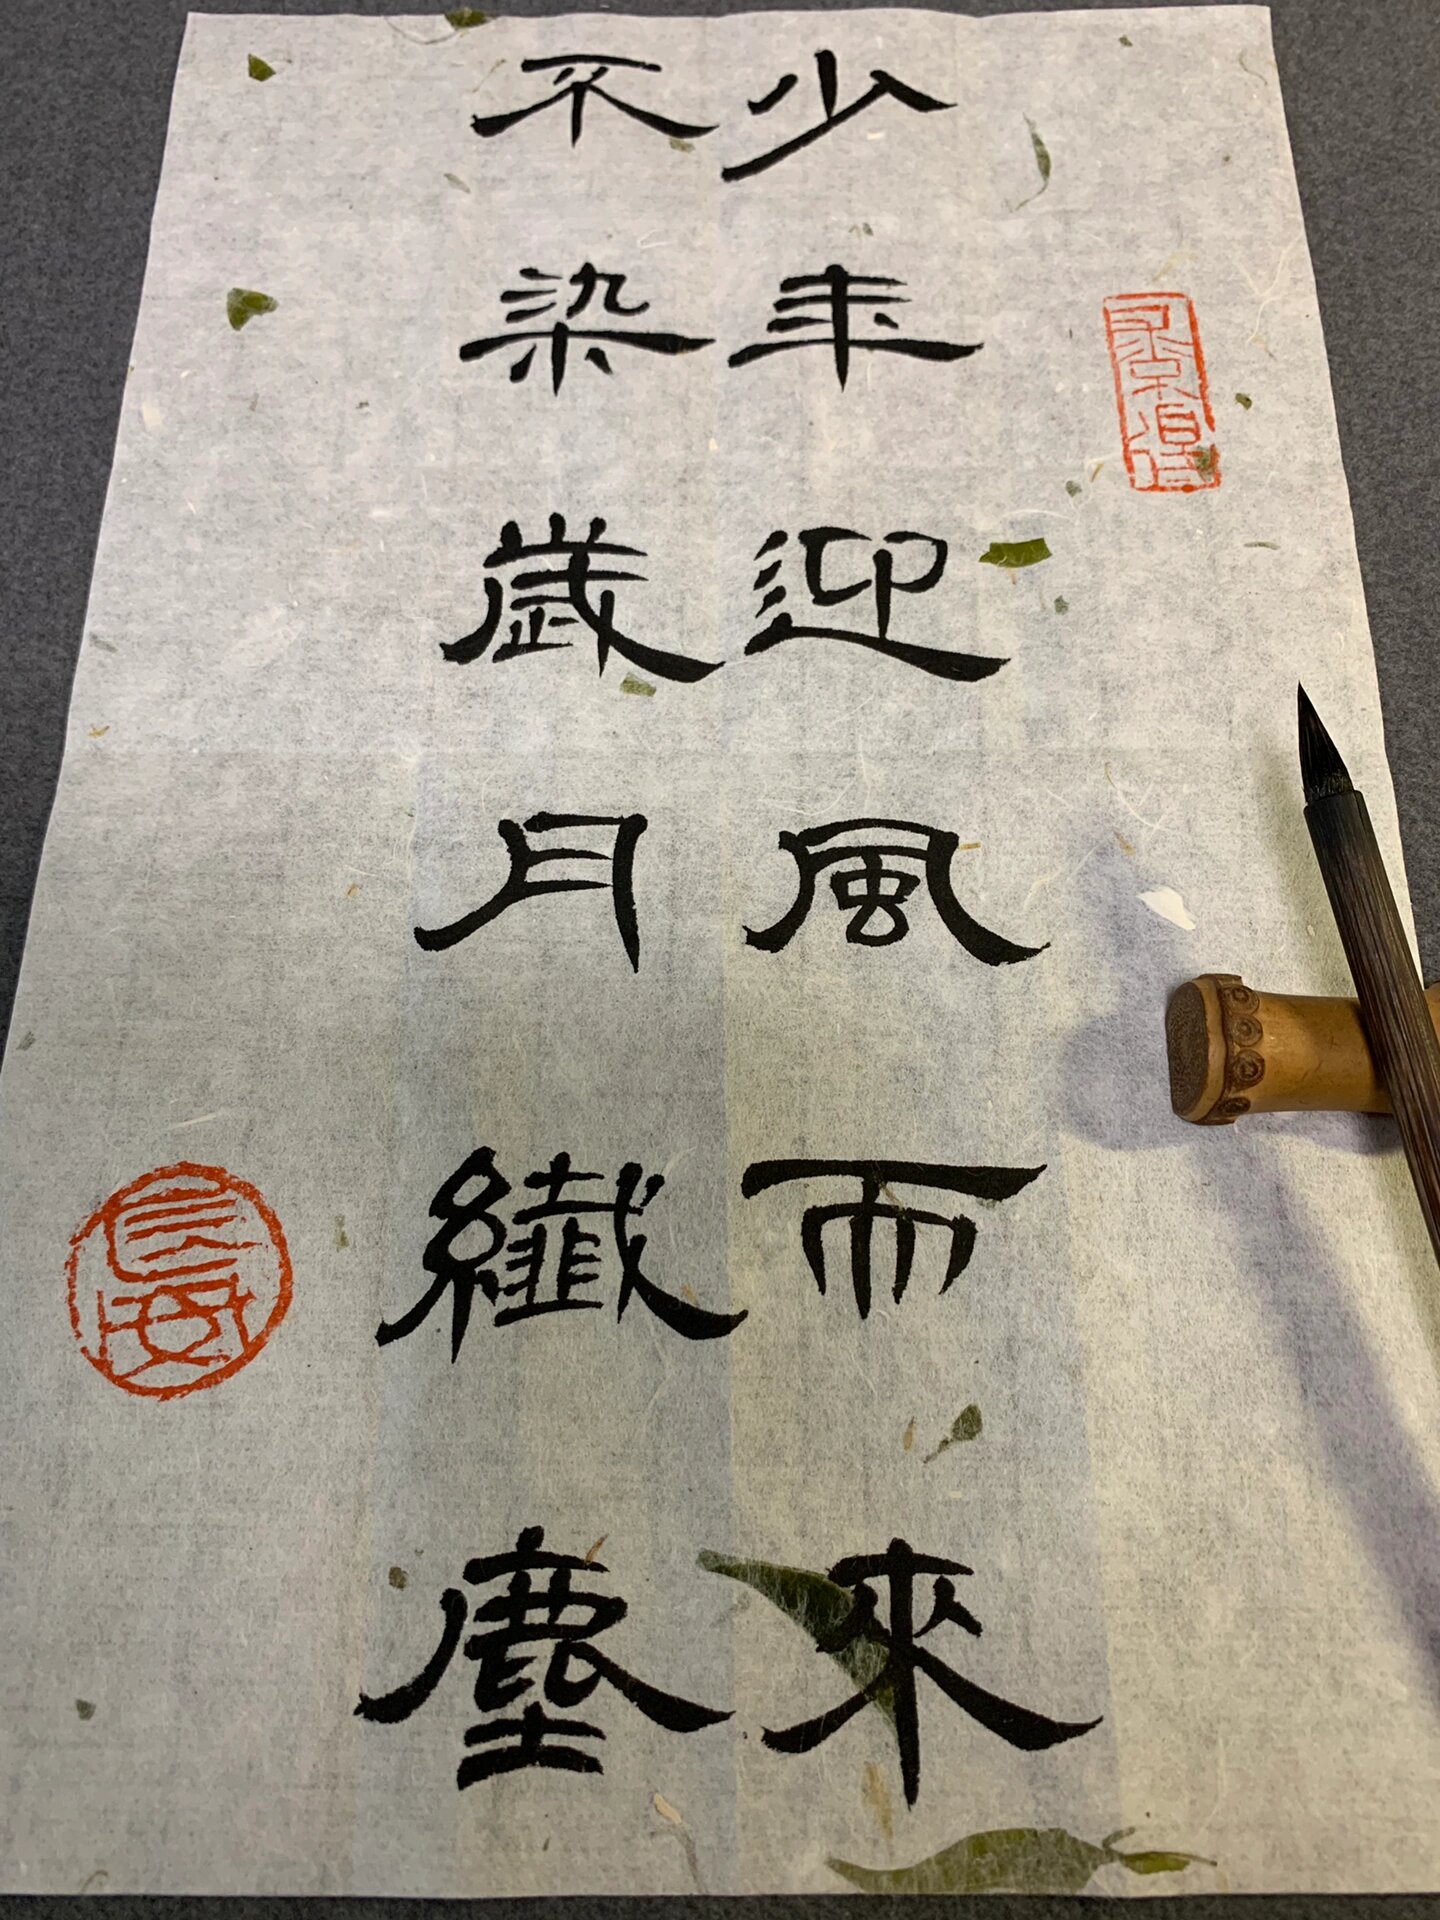 少年迎風而來
不染歲月纖塵
長安